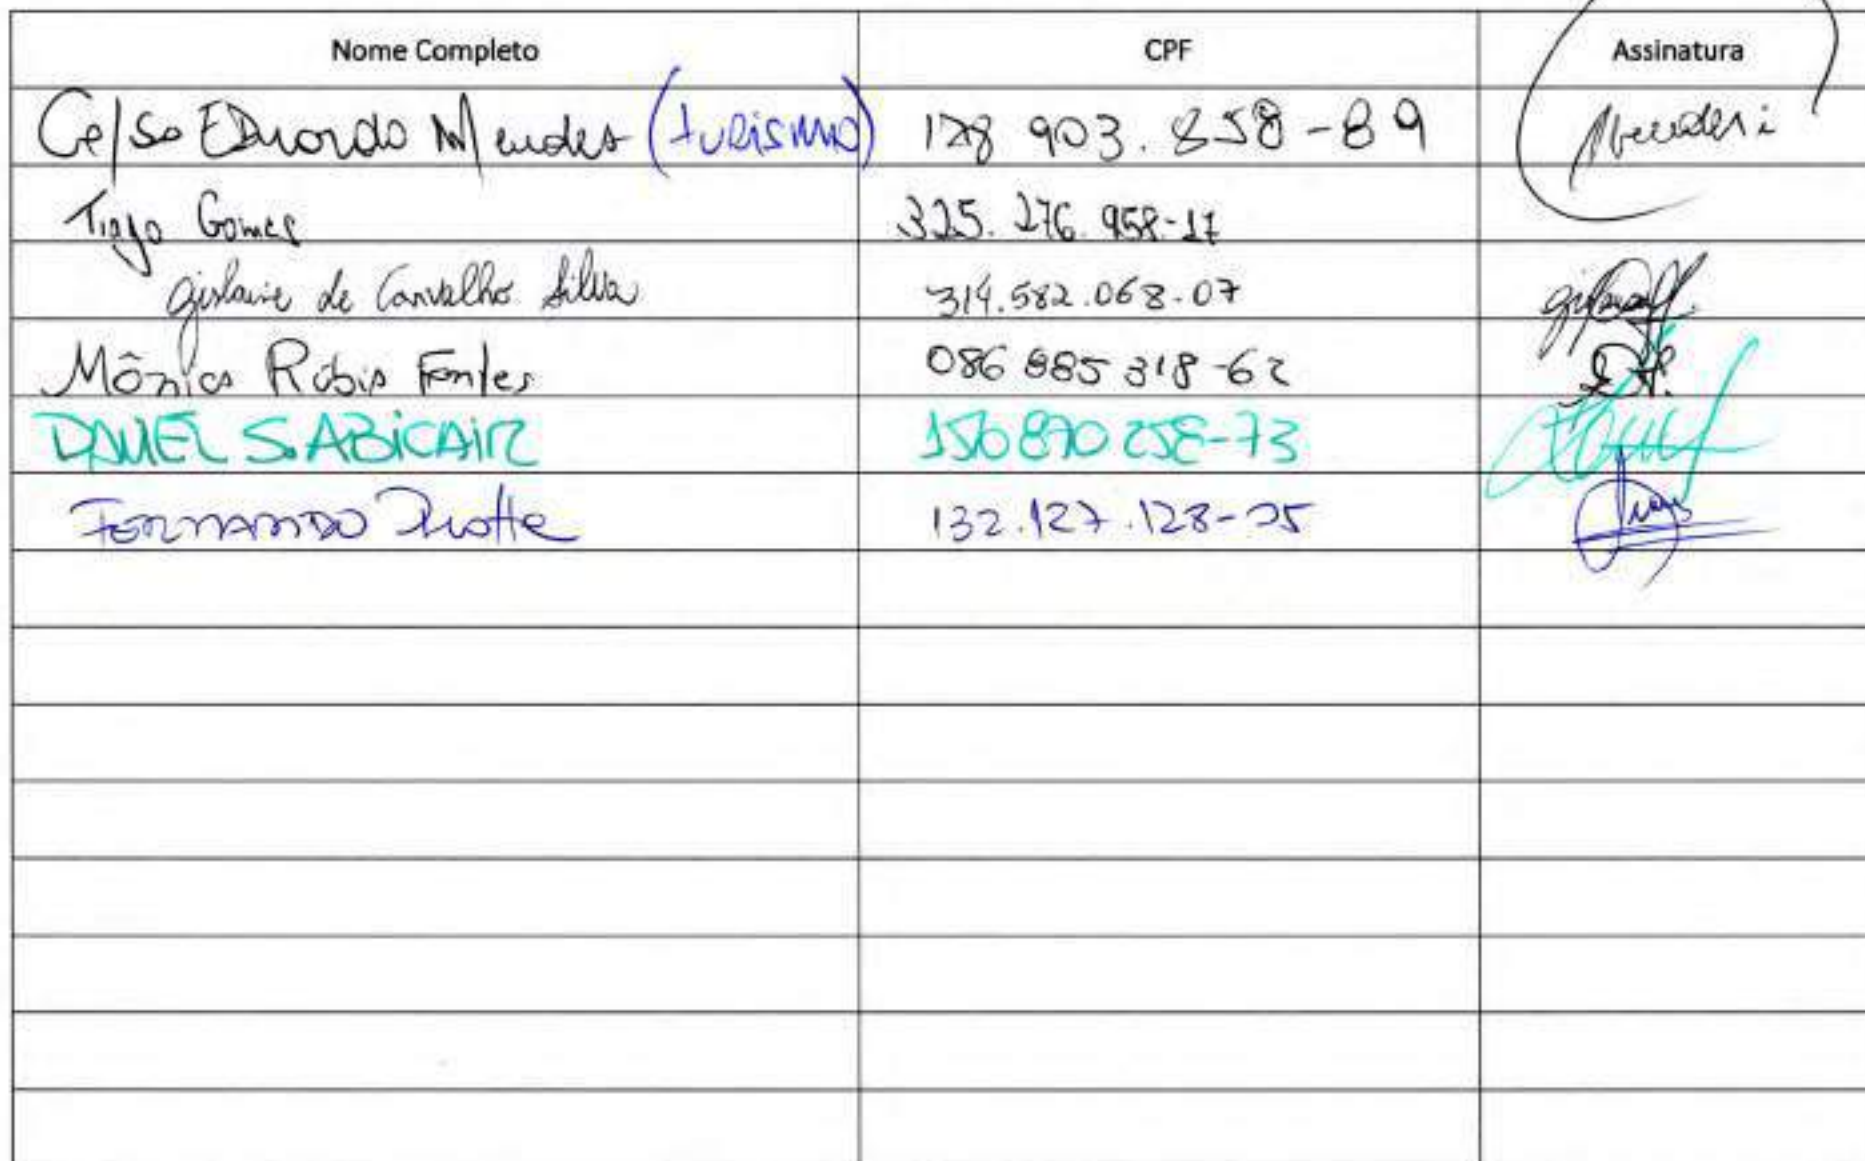 Nome Completo CPF Assinatura
Celso Eduardo Mendes (turismo) 128 903.858-89
Tiago Gomes 325.276.958-17
Gislaine de Carvalho Silva 314.582.068-07
Mônica Rubia Fontes 086 885 318-62
DANIEL S. ABICAIR 150 870 258-73
FERNANDO 132.127.128-25